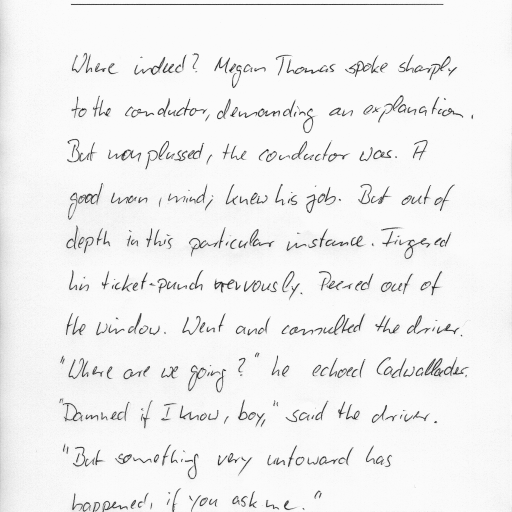 Where indeed? Megan Thomas spoke sharply
to the conductor, demanding an explanation.
But nonplussed, the conductor was. A
good man, mind, knew his job. But out of
depth in this particular instance. Fingered
his ticket-punch nervously. Peered out of
the window. Went and consulted the driver.
"Where are we going?" he echoed Cadwallader.
"Damned if I know, boy," said the driver.
"But something very untoward has
happened, if you ask me."